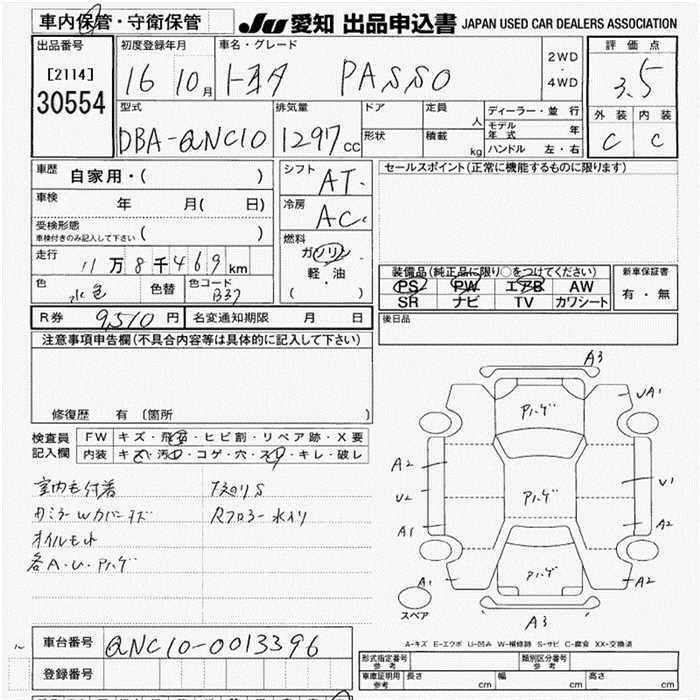 車内保管・守衛保管 JU 愛知 出品申込書 JAPAN USED CAR DEALERS ASSOCIATION
出品番号 初度登録年月 車名・グレード 2WD・4WD 評価点
[2114] 16 10月 トヨタ PASSO 3.5
30554
型式 排気量 ドア 定員 人 ディーラー・並行 外装 内装
DBA-QNC10 1297cc 形状 積載 kg モデル年式 年 C C
ハンドル 左・右
車歴 自家用・( ) シフト AT セールスポイント(正常に機能するものに限ります)
車検 年 月( 日) 冷房 AC
受検形態 ( )
車検付きのみ記入して下さい
燃料 ガソリン
走行 11万8千469km 軽・油 装備品(純正品に限り○をつけてください) 新車保証書
色 水色 色替 色コード B37 ( ) PS PW エアB AW 有・無
SR ナビ TV カワシート
R券 9,510円 名変通知期限 月 日 後日品
注意事項申告欄(不具合内容等は具体的に記入して下さい)
修復歴 有 〔箇所 〕
検査員記入欄 FW キズ・飛石・ヒビ割・リペア跡・X要
内装 キズ・汚れ・コゲ・穴・スレ・キレ・破レ
オイルもれ
各A・U・Pハゲ
A3
Pハゲ UA1
A2 U2 A1 Pハゲ U1 A2
A1 Pハゲ A2
スペア A3
A-キズ E-エクボ U-凹み W-補修跡 S-サビ C-腐食 XX-交換済
車台番号 QNC10-0013396 形式指定番号 参考 類別区分番号 参考
登録番号 車庫証明用 参考 長さ cm 幅 cm 高さ cm